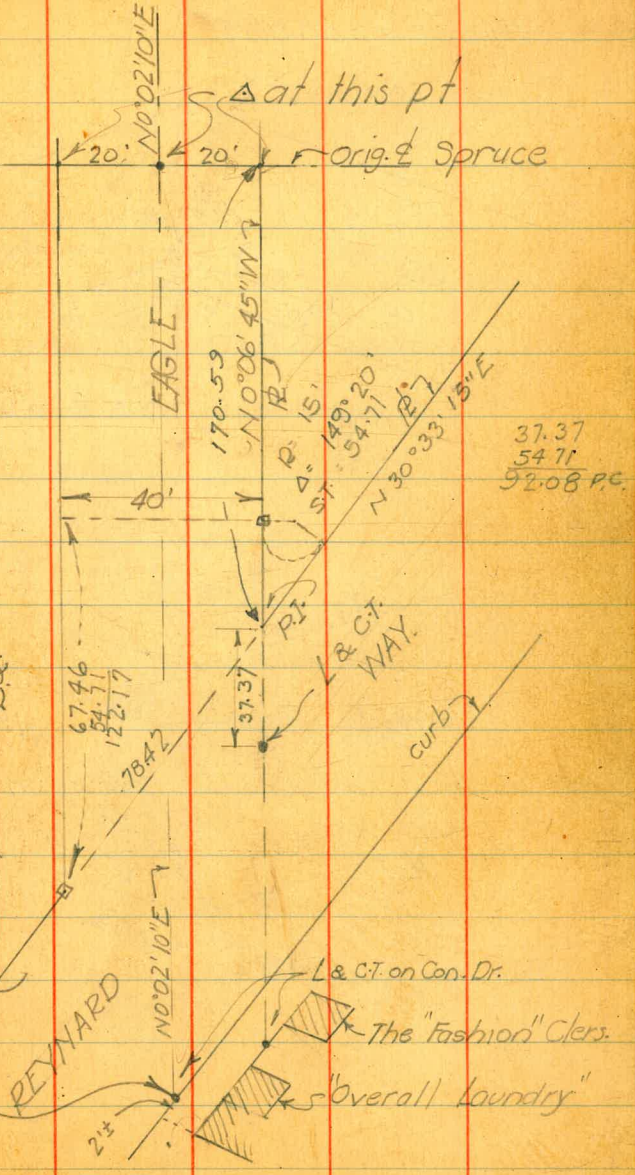 N0°02'10"E
△ at this pt
20'
20'
Orig. ℄ Spruce
EAGLE
170.59
N0°06'45"W
℞
R= 15'
Δ= 149°20'
S.T.= 54.71
℞
N30°33'15"E
37.37
54.71
92.08 P.C.
40'
P.I.
L & C.T.
WAY.
37.37
67.46
54.71
122.17
78.42
curb
N0°02'10"E
REYNARD
L & C.T. on Con. Dr.
The "Fashion" Clers.
"Overall Laundry"
2'±